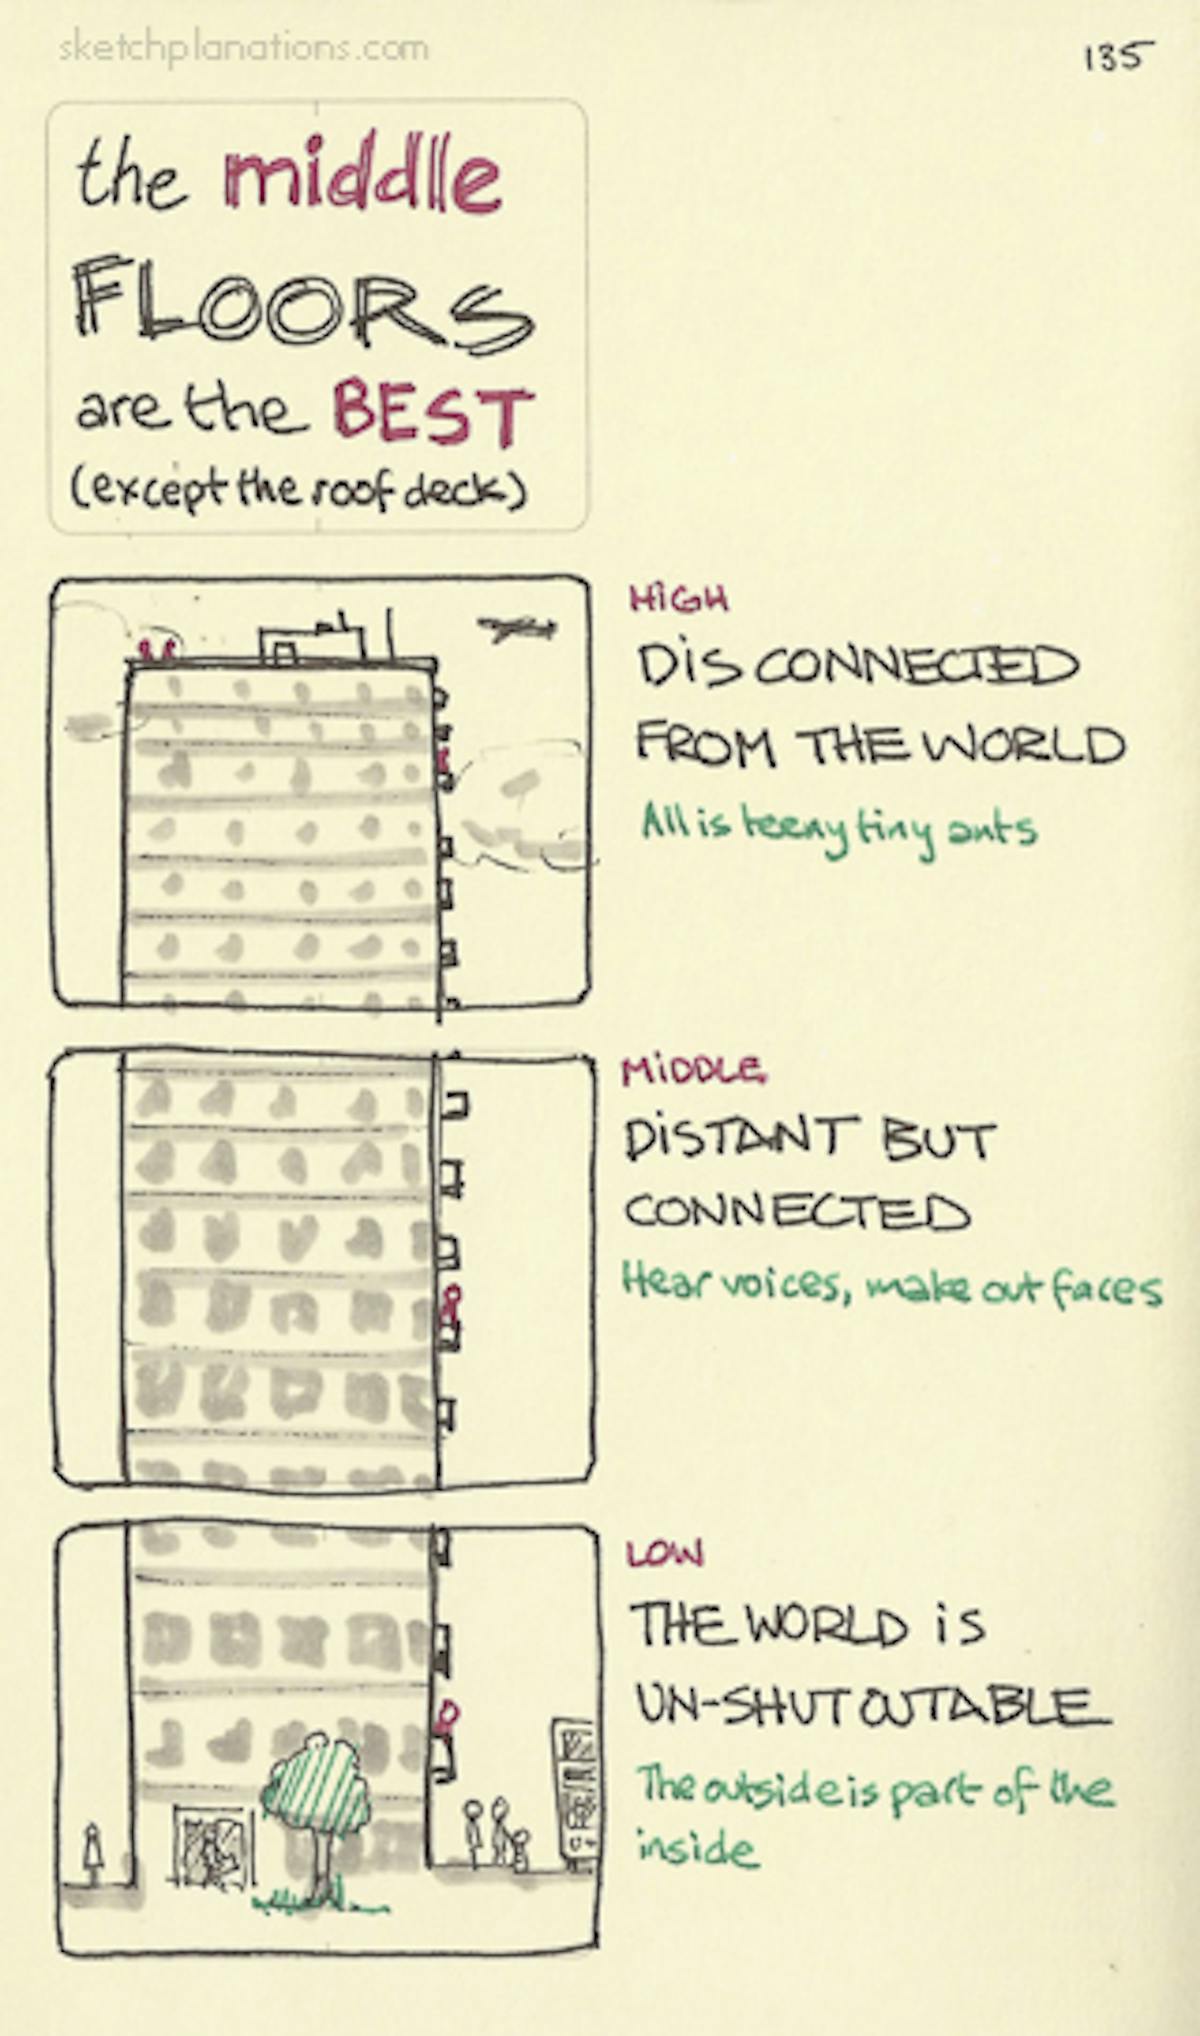 sketchplanations.com
135
the middle
FLOORS
are the BEST
(except the roof deck)
HiGH
DiSCONNECTED
FROM THE WORLD
All is teeny tiny ants
MiDDLE
DiSTANT BUT
CONNECTED
Hear voices, make out faces
LOW
THE WORLD iS
UN-SHUTOUTABLE
The outside is part of the
inside